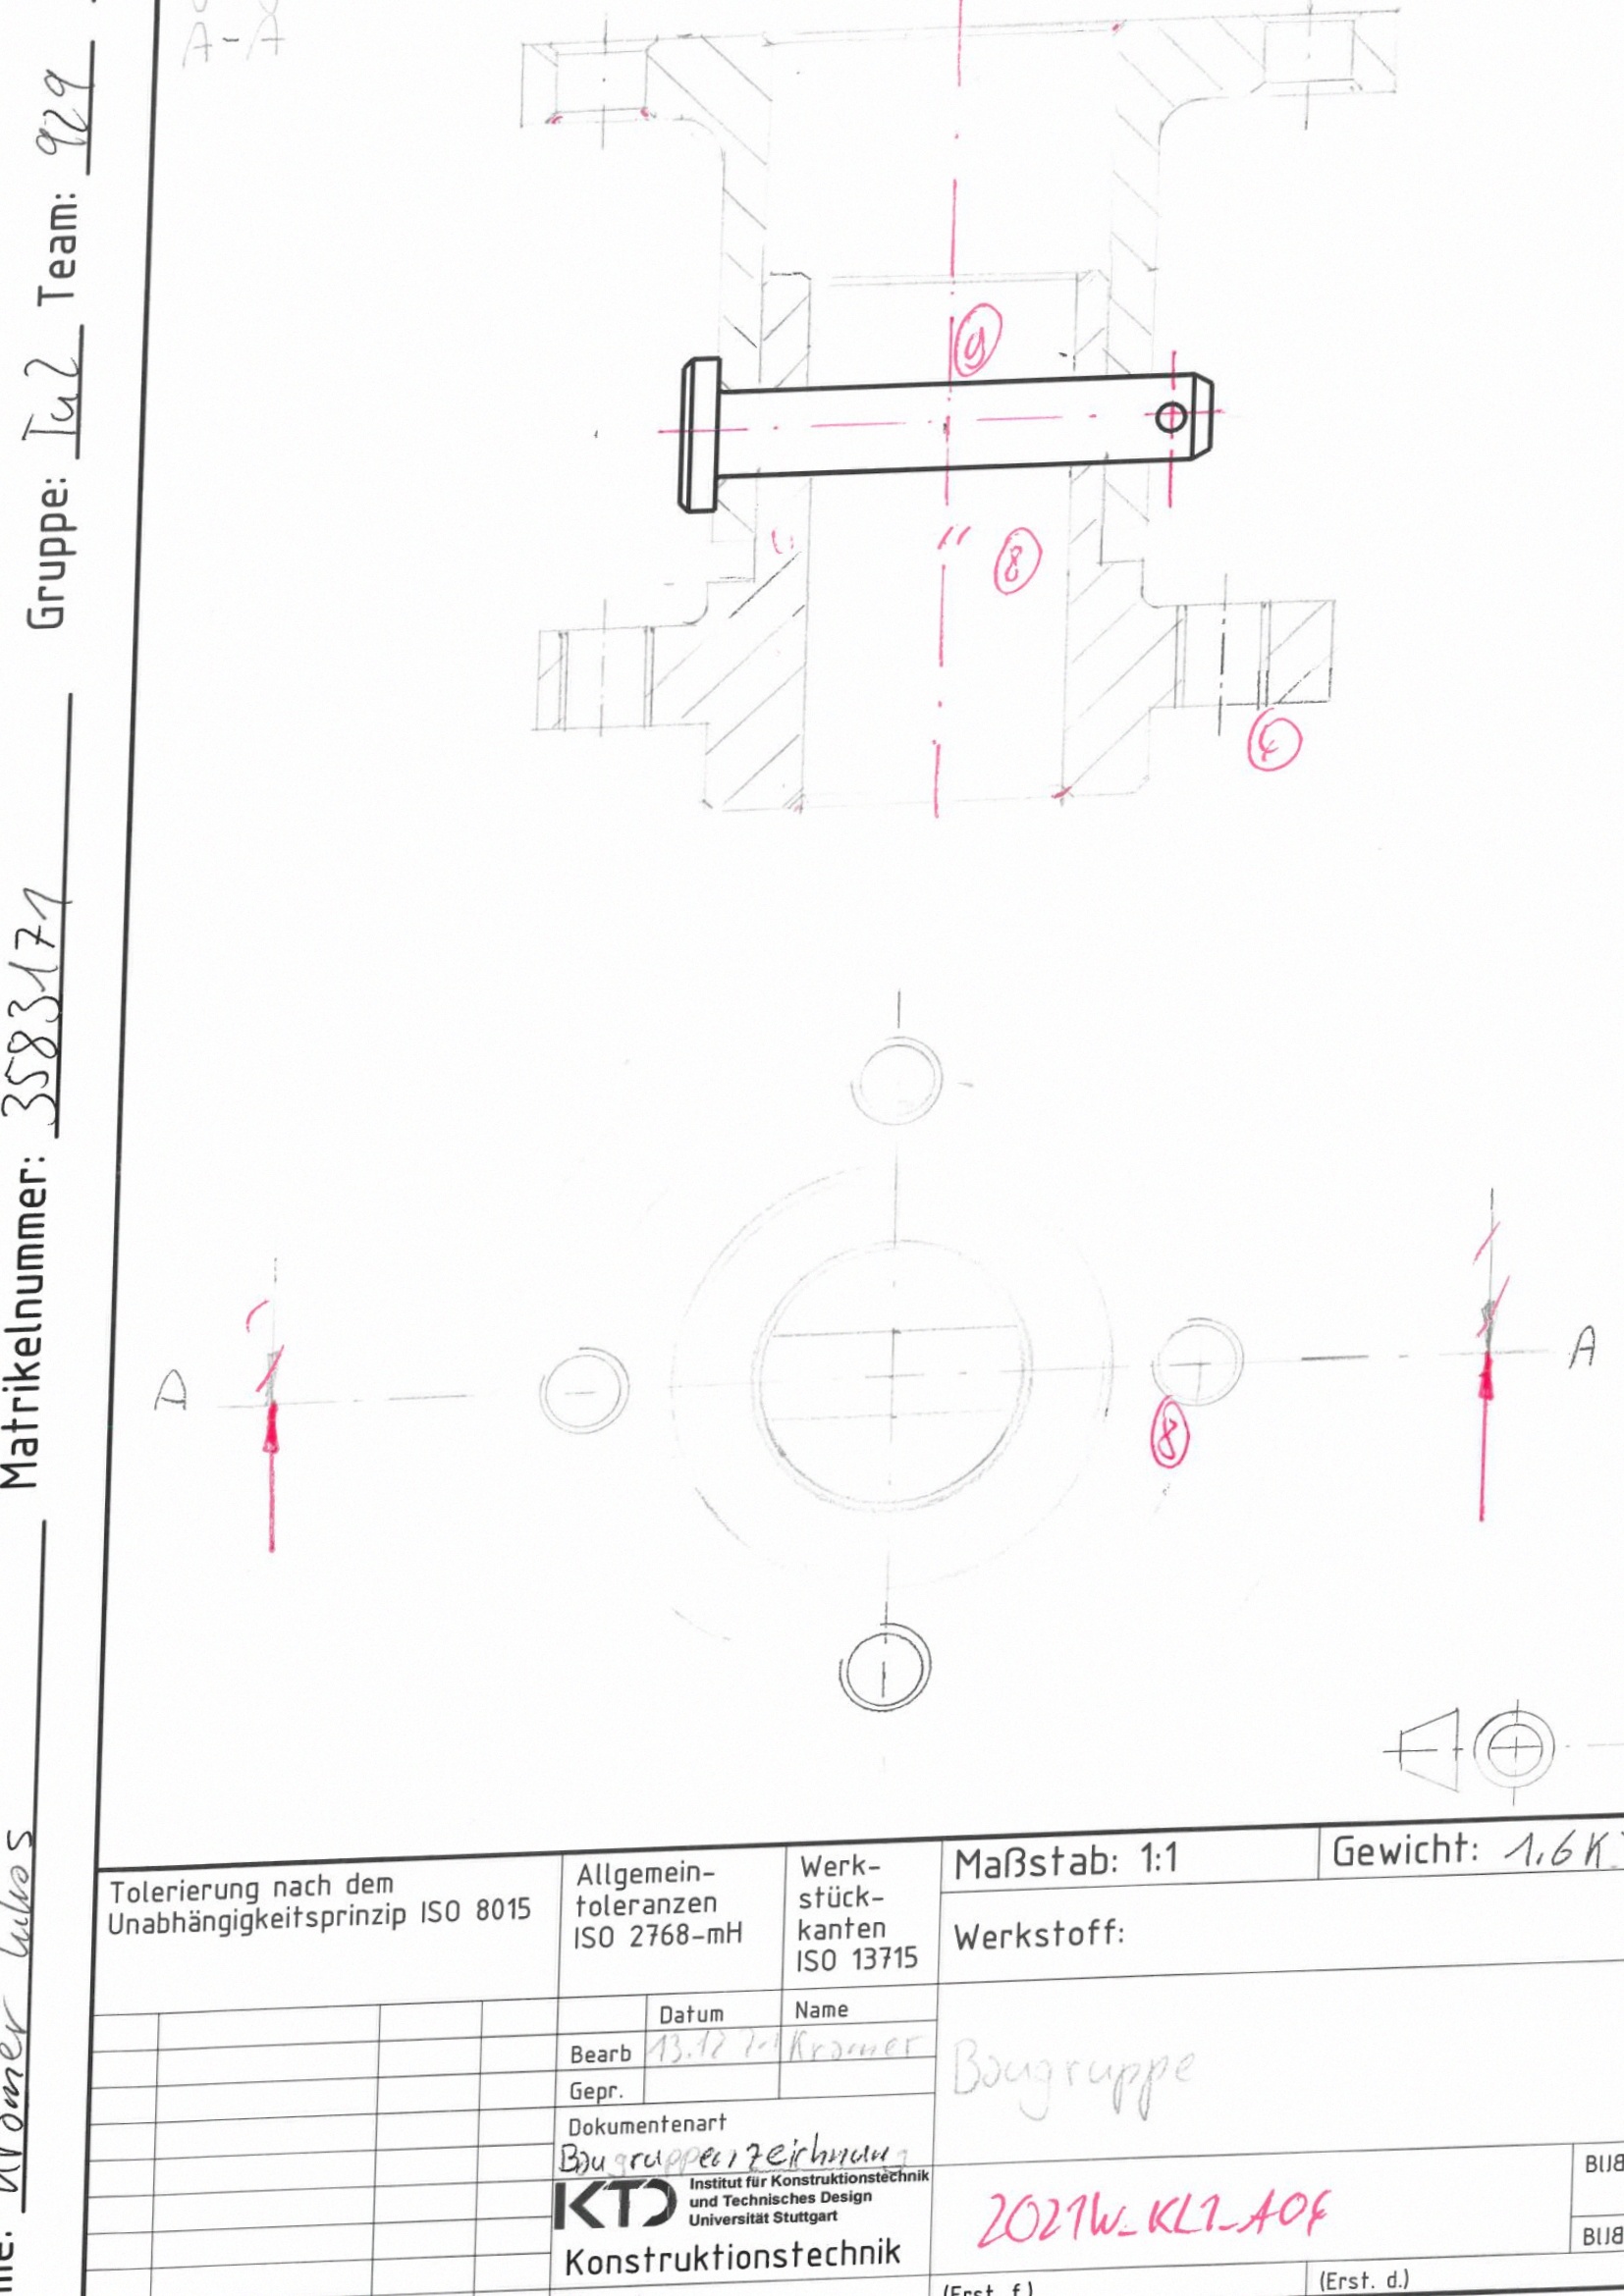 A-A
Gruppe: Tu2 Team: 929
Matrikelnummer: 3583171
9
8
8
D
A
Maßstab: 1:1
Gewicht: 1.6 K
Tolerierung nach dem
Unabhängigkeitsprinzip ISO 8015
Allgemein-
toleranzen
ISO 2768-mH
Werk-
stück-
kanten
ISO 13715
Werkstoff:
Datum
Name
Bearb
13.12
Kramer
Gepr.
Baugruppe
Dokumentenart
Baugruppenzeichnung
KTD
Institut für Konstruktionstechnik
und Technisches Design
Universität Stuttgart
Konstruktionstechnik
2021W_KL1_A04
(Erst. f.)
(Erst. d.)